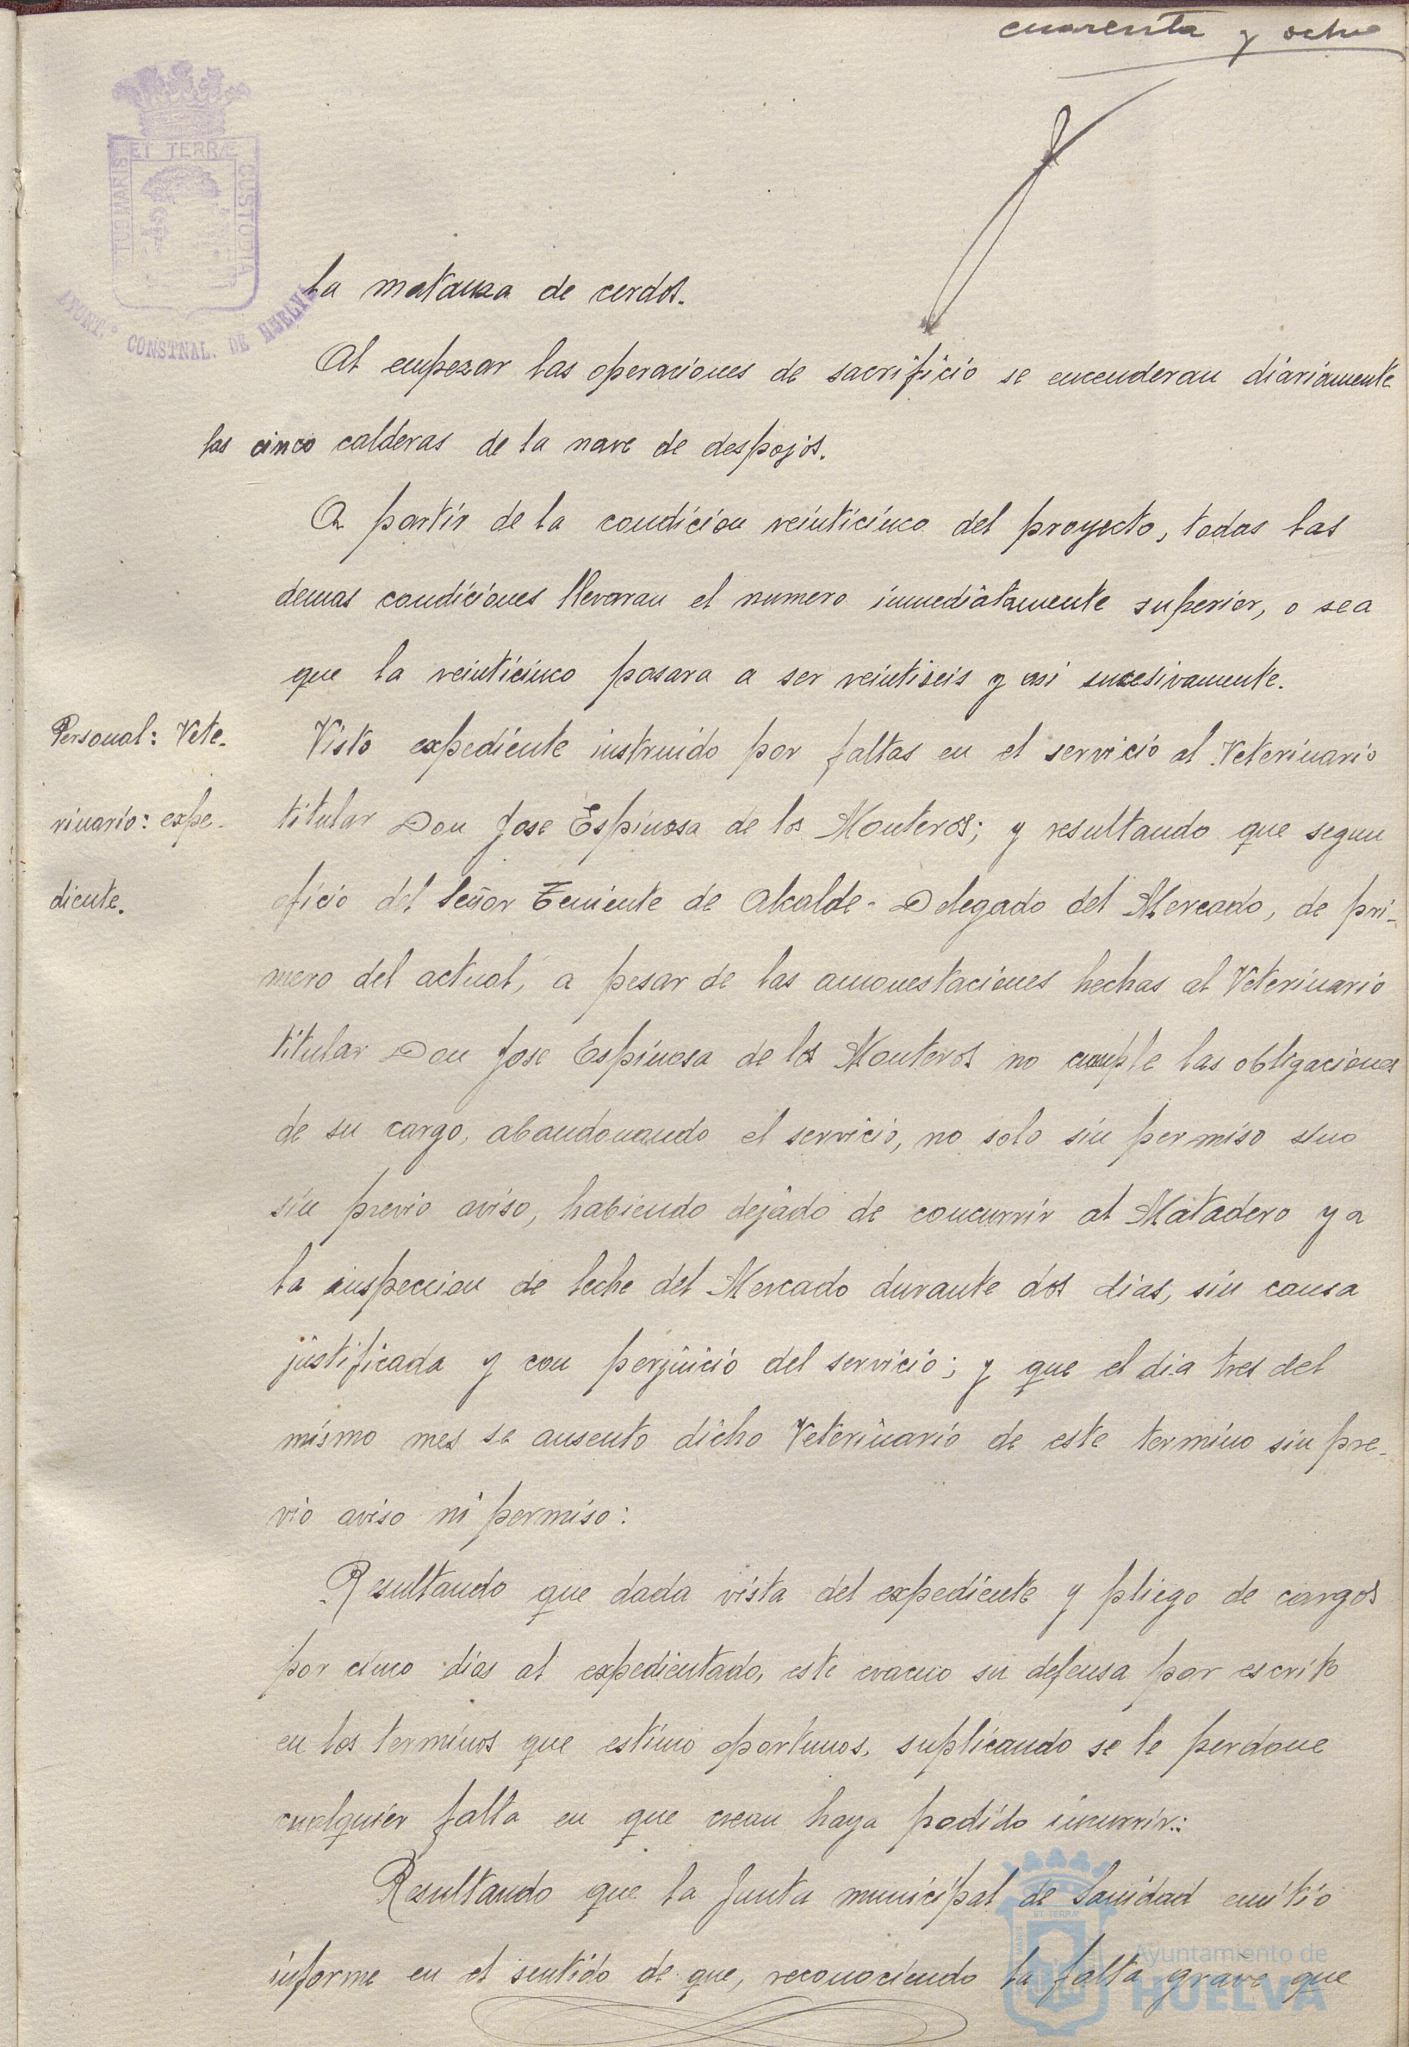 cuarenta y ocho
ET TERRÆ
TUO MARIS
CUSTODIA
AYUNT.º CONSTNAL. DE HUELVA
la matanza de cerdos.
Al empezar las operaciones de sacrificio se encenderan diariamente
las cinco calderas de la nave de despojos.
A partir de la condicion veinticinco del proyecto, todas las
demas condiciones llevaran el numero inmediatamente superior, o sea
que la veinticinco pasara a ser veintiseis y asi sucesivamente.
Personal: Vete-
rinario: expe-
diente.
Visto expediente instruido por faltas en el servicio al Veterinario
titular Don Jose Espinosa de los Monteros; y resultando que segun
oficio del Señor Teniente de Alcalde-Delegado del Mercado, de pri-
mero del actual, a pesar de las amonestaciones hechas al Veterinario
titular Don Jose Espinosa de los Monteros no cumple las obligaciones
de su cargo, abandonando el servicio, no solo sin permiso sino
sin previo aviso, habiendo dejado de concurrir al Matadero y a
la inspeccion de leche del Mercado durante dos dias, sin causa
justificada y con perjuicio del servicio; y que el dia tres del
mismo mes se ausento dicho Veterinario de este termino sin pre-
vio aviso ni permiso:
Resultando que dada vista del expediente y pliego de cargos
por cinco dias al expedientado, este evacuo su defensa por escrito
en los terminos que estimo oportunos, suplicando se le perdone
cualquier falta en que crean haya podido incurrir:
Resultando que la Junta municipal de Sanidad emitio
informe en el sentido de que, reconociendo la falta grave que
Ayuntamiento de
HUELVA